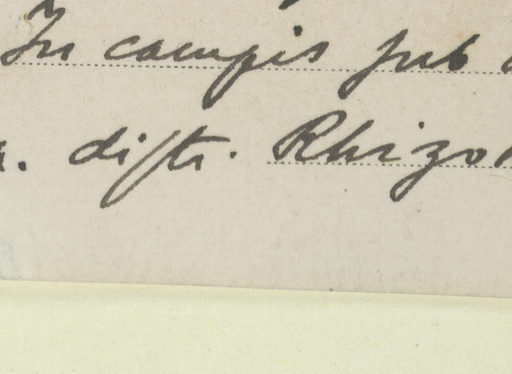 In campis sub
a. distr. Rhizo